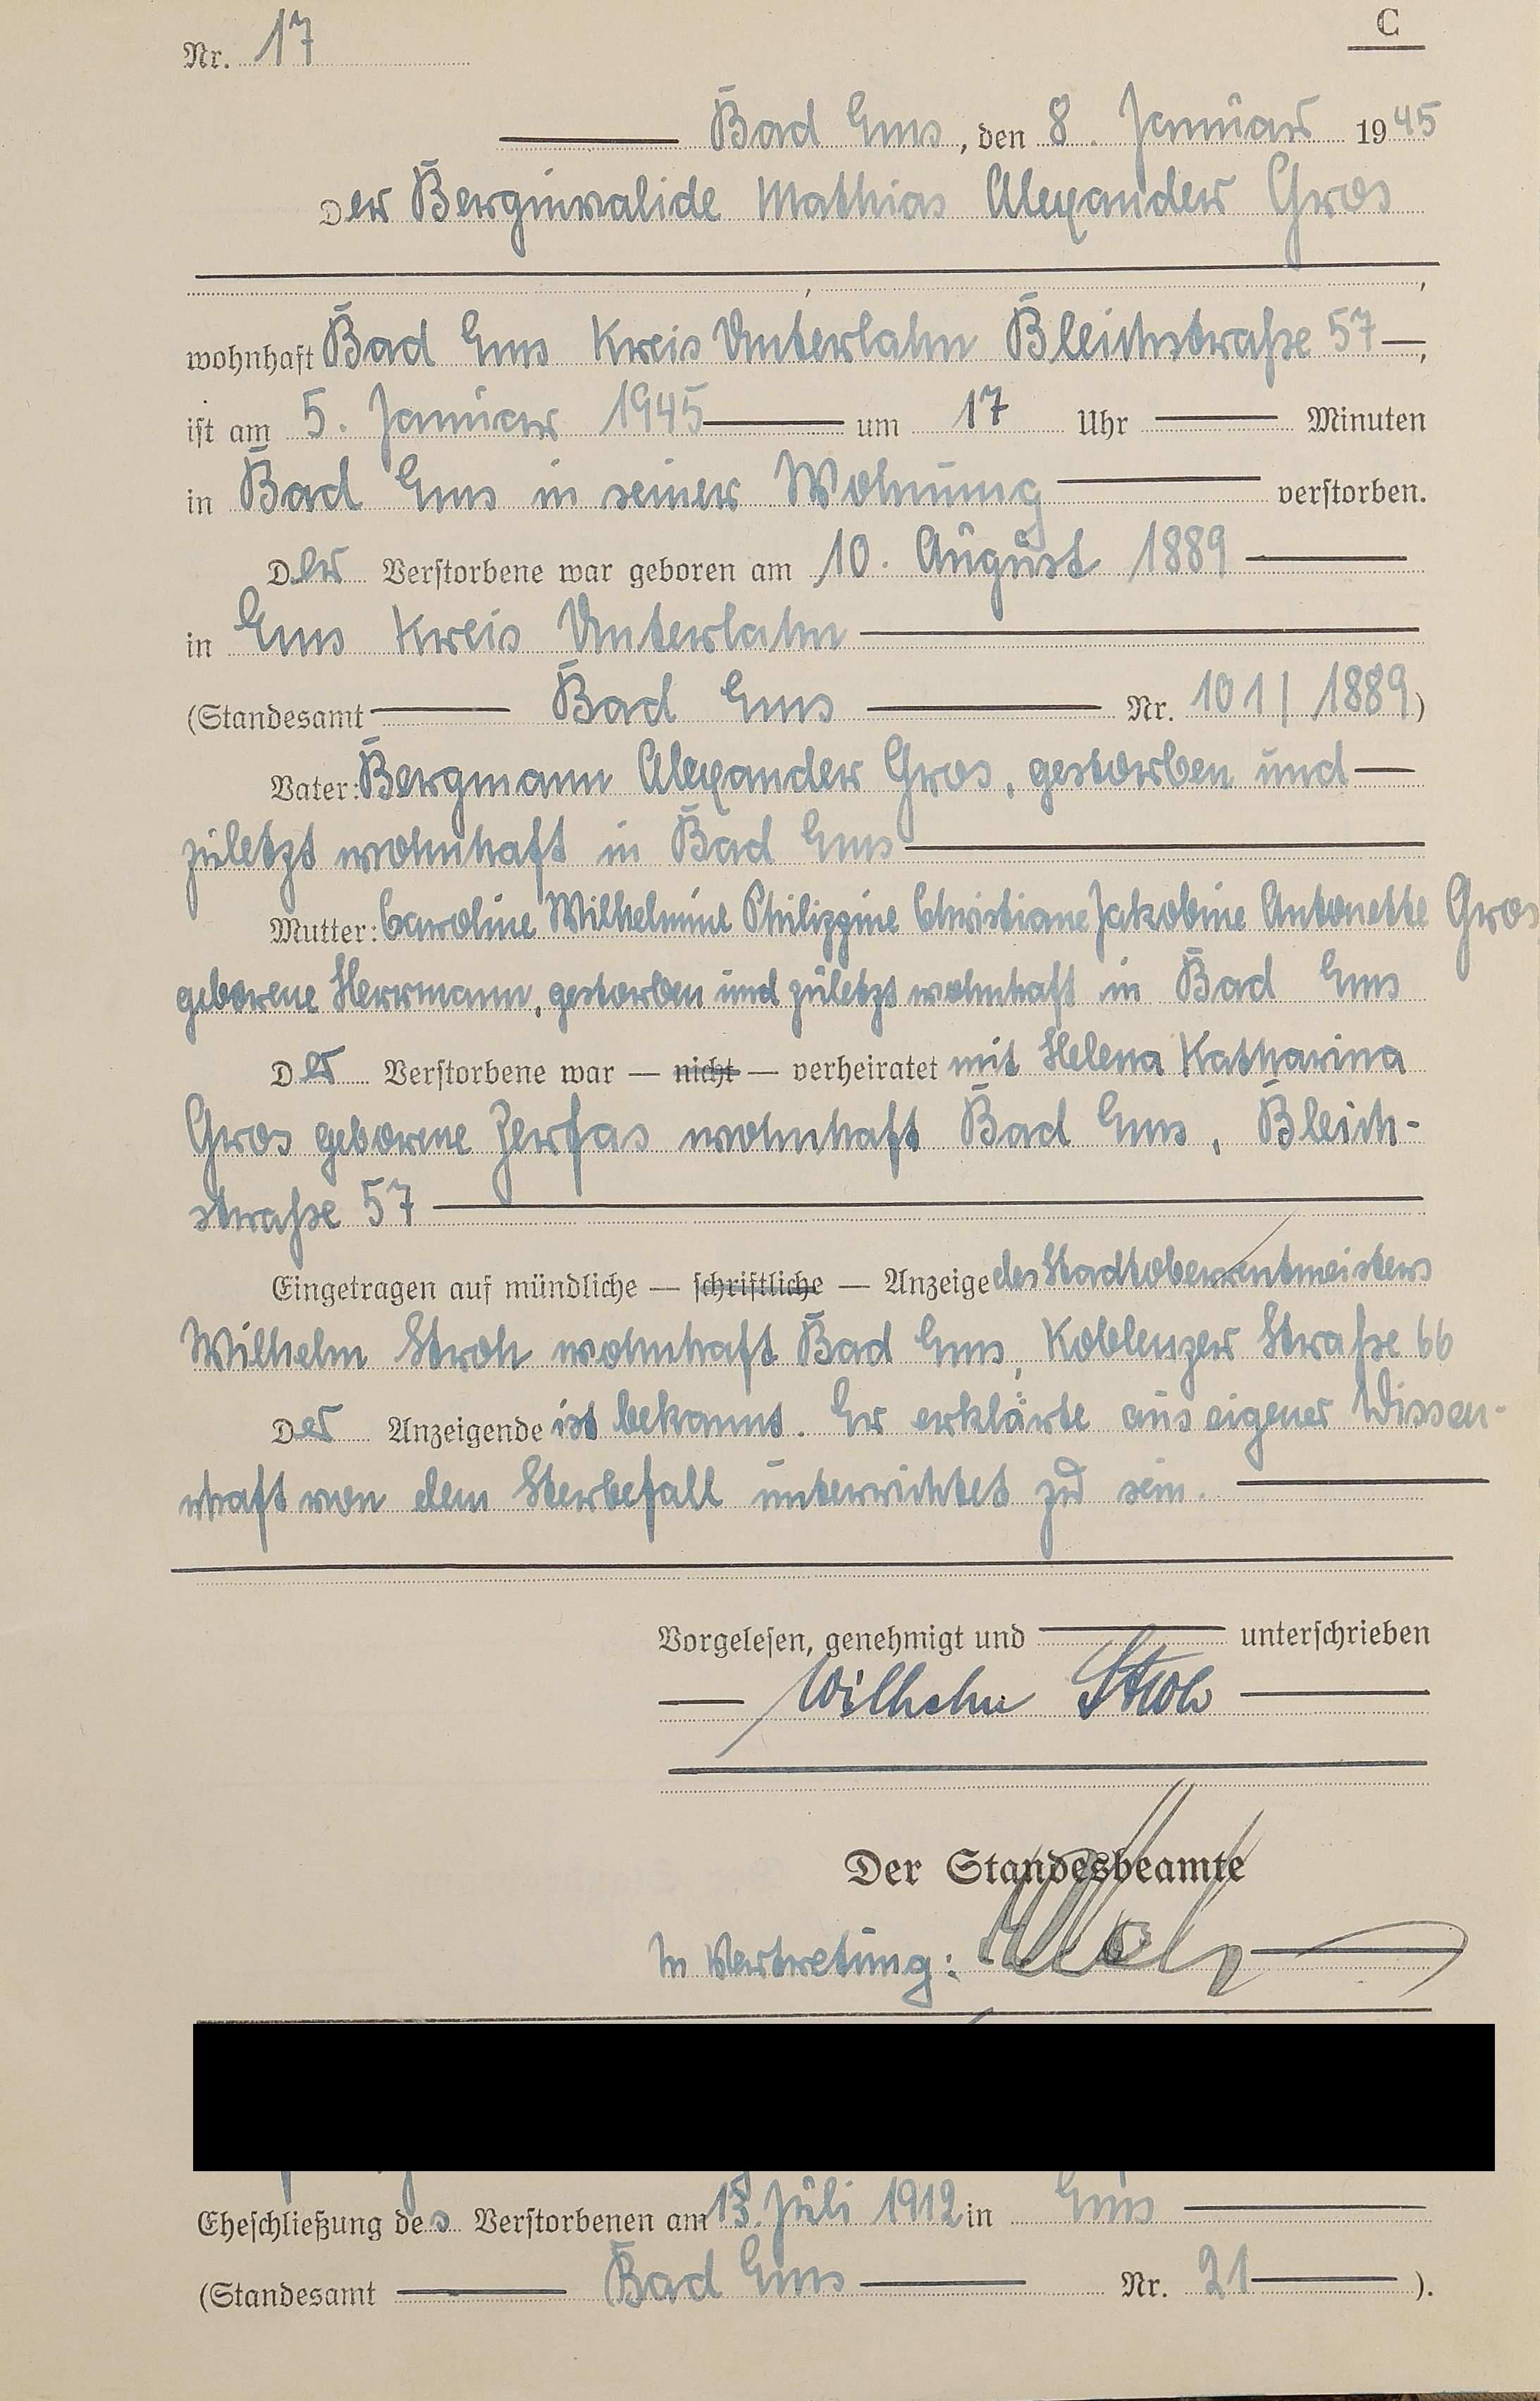 C
Nr. 17
Bad Ems, den 8. Januar 1945
Der Berginvalide Mathias Alexander Gros
wohnhaft Bad Ems Kreis Unterlahn Bleichstraße 57,
ist am 5. Januar 1945 um 17 Uhr Minuten
in Bad Ems in seiner Wohnung verstorben.
Der Verstorbene war geboren am 10. August 1889
in Ems Kreis Unterlahn
(Standesamt Bad Ems Nr. 101/1889)
Vater: Bergmann Alexander Gros, gestorben und
zuletzt wohnhaft in Bad Ems
Mutter: Caroline Wilhelmine Philippine Christiane Jakobine Antonette Gros
geborene Herrmann, gestorben und zuletzt wohnhaft in Bad Ems
Der Verstorbene war — nicht — verheiratet mit Helena Katharina
Gros geborene Zerfas wohnhaft Bad Ems, Bleich-
straße 57
Eingetragen auf mündliche — schriftliche — Anzeige des Stadtoberrentmeisters
Wilhelm Stroh wohnhaft Bad Ems, Koblenzer Straße 66
Der Anzeigende ist bekannt. Er erklärte aus eigener Wissen-
schaft von dem Sterbefall unterrichtet zu sein.
Vorgelesen, genehmigt und unterschrieben
Wilhelm Stroh
Der Standesbeamte
In Vertretung:
Eheschließung des Verstorbenen am 13. Juli 1912 in Ems
(Standesamt Bad Ems Nr. 21 ).